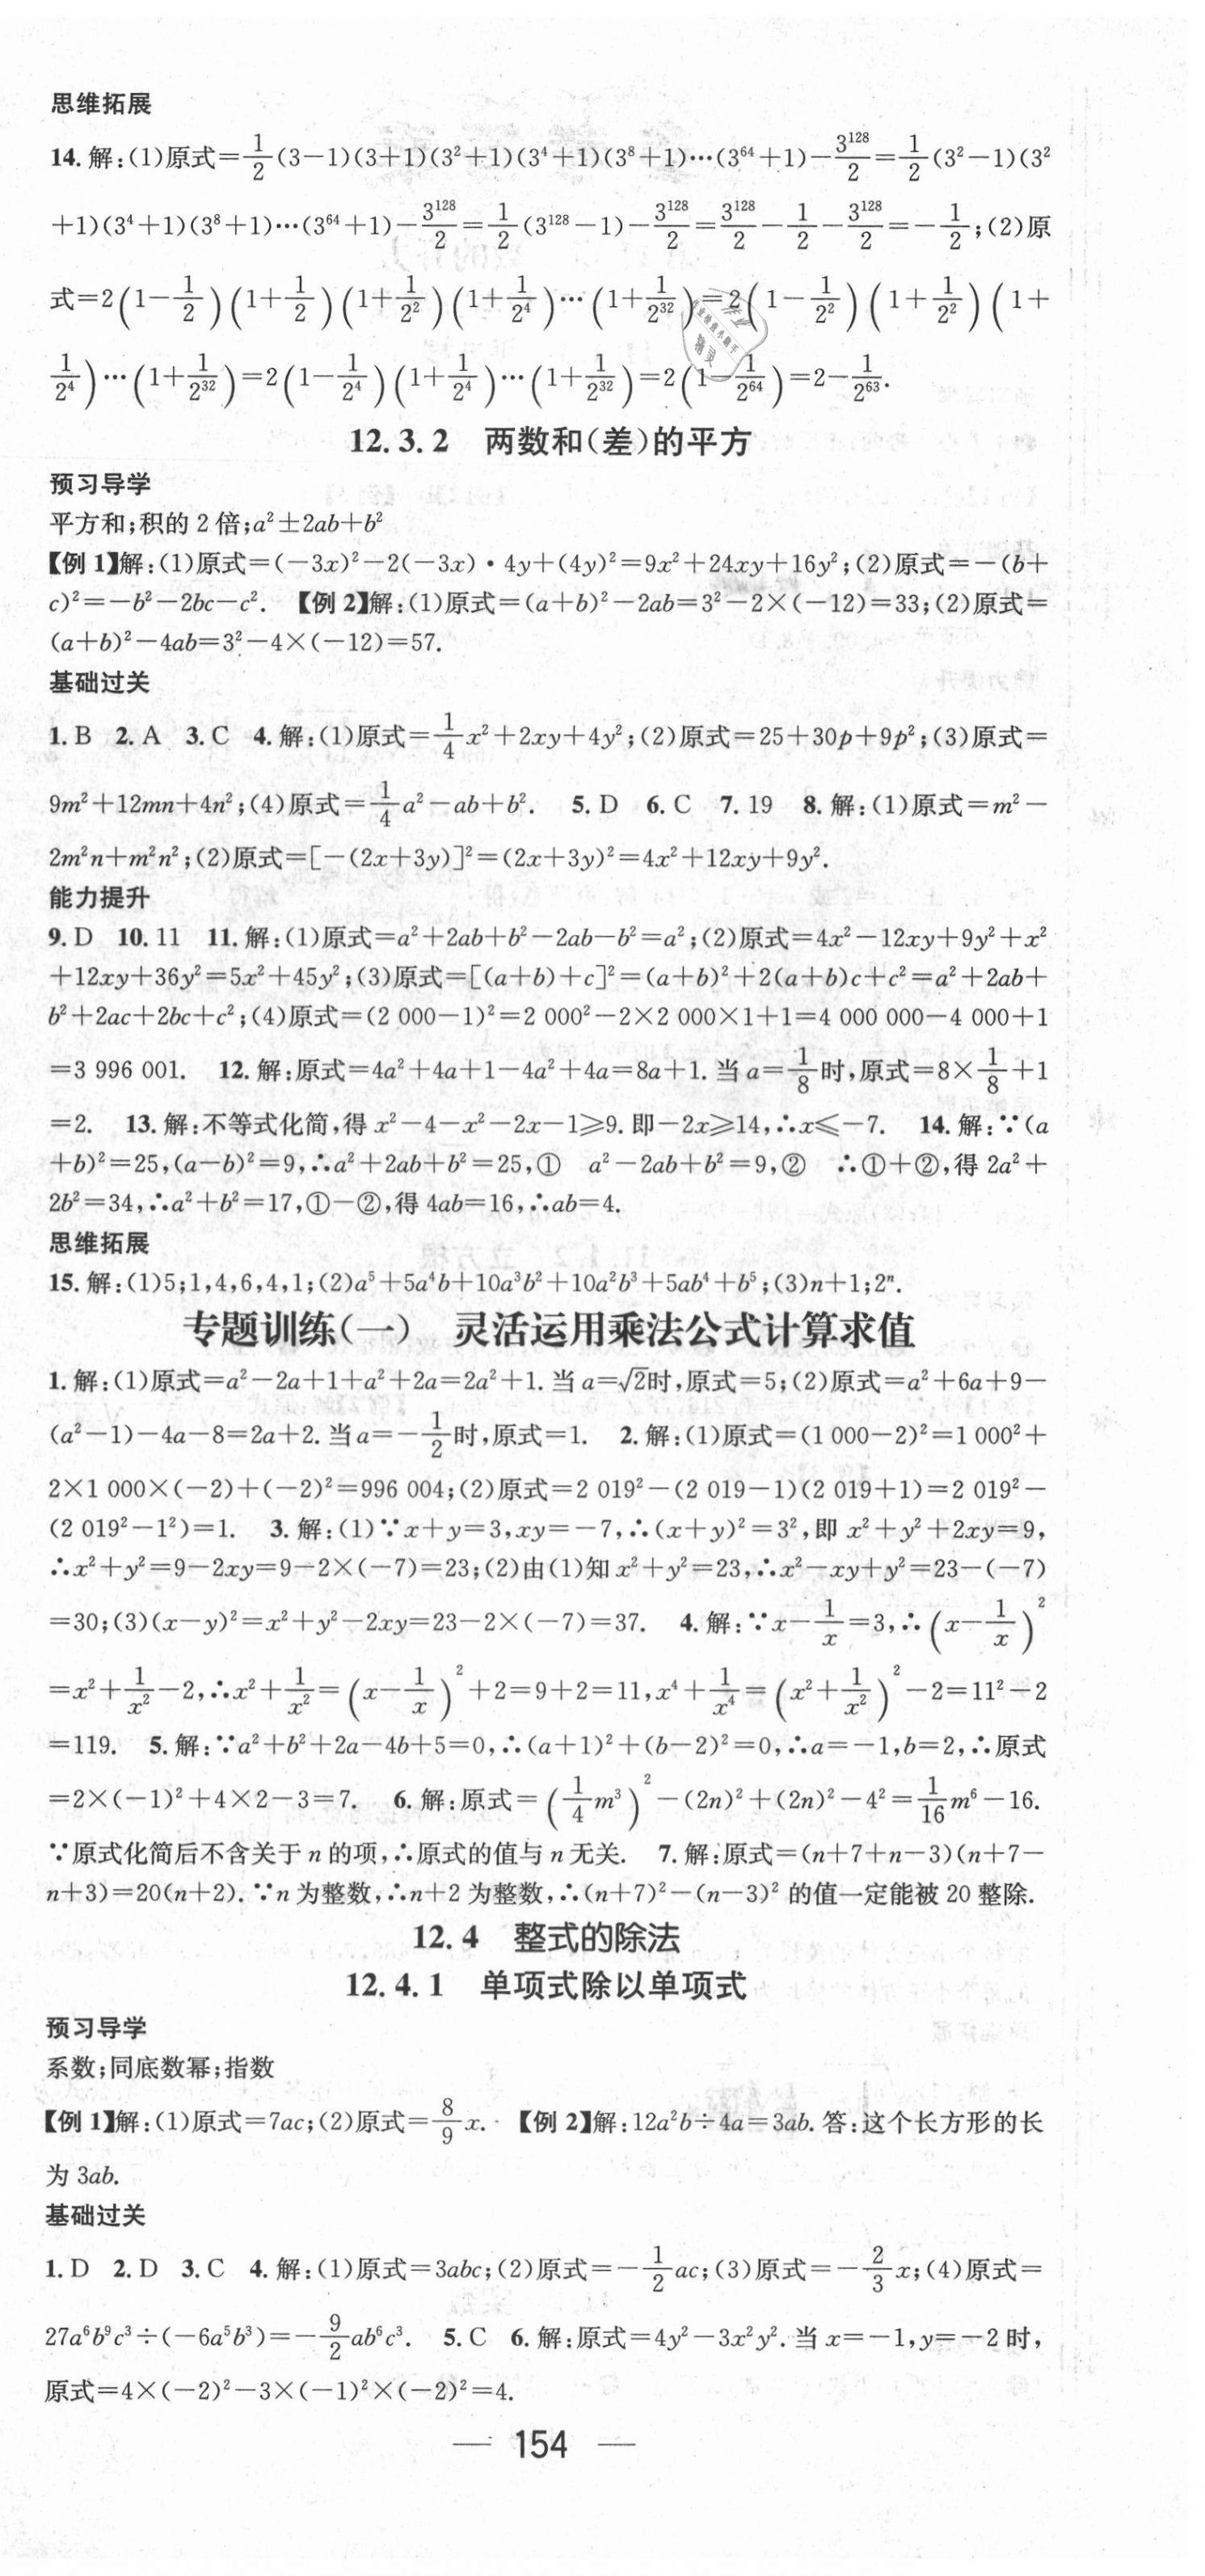 思维拓展
14.解:(1)原式=1/2(3-1)(3+1)(3²+1)(3⁴+1)(3⁸+1)…(3⁶⁴+1)-3¹²⁸/2=1/2(3²-1)(3²
+1)(3⁴+1)(3⁸+1)…(3⁶⁴+1)-3¹²⁸/2=1/2(3¹²⁸-1)-3¹²⁸/2=3¹²⁸/2-1/2-3¹²⁸/2=-1/2;(2)原
式=2(1-1/2)(1+1/2)(1+1/2²)(1+1/2⁴)…(1+1/2³²)=2(1-1/2²)(1+1/2²)(1+
1/2⁴)…(1+1/2³²)=2(1-1/2⁴)(1+1/2⁴)…(1+1/2³²)=2(1-1/2⁶⁴)=2-1/2⁶³.
12.3.2 两数和(差)的平方
预习导学
平方和;积的2倍;a²±2ab+b²
【例1】解:(1)原式=(-3x)²-2(-3x)·4y+(4y)²=9x²+24xy+16y²;(2)原式=-(b+
c)²=-b²-2bc-c². 【例2】解:(1)原式=(a+b)²-2ab=3²-2×(-12)=33;(2)原式=
(a+b)²-4ab=3²-4×(-12)=57.
基础过关
1.B 2.A 3.C 4.解:(1)原式=1/4x²+2xy+4y²;(2)原式=25+30p+9p²;(3)原式=
9m²+12mn+4n²;(4)原式=1/4a²-ab+b². 5.D 6.C 7.19 8.解:(1)原式=m²-
2m²n+m²n²;(2)原式=[-(2x+3y)]²=(2x+3y)²=4x²+12xy+9y².
能力提升
9.D 10.11 11.解:(1)原式=a²+2ab+b²-2ab-b²=a²;(2)原式=4x²-12xy+9y²+x²
+12xy+36y²=5x²+45y²;(3)原式=[(a+b)+c]²=(a+b)²+2(a+b)c+c²=a²+2ab+
b²+2ac+2bc+c²;(4)原式=(2 000-1)²=2 000²-2×2 000×1+1=4 000 000-4 000+1
=3 996 001. 12.解:原式=4a²+4a+1-4a²+4a=8a+1.当a=1/8时,原式=8×1/8+1
=2. 13.解:不等式化简,得x²-4-x²-2x-1≥9.即-2x≥14,∴x≤-7. 14.解:∵(a
+b)²=25,(a-b)²=9,∴a²+2ab+b²=25,① a²-2ab+b²=9,② ∴①+②,得2a²+
2b²=34,∴a²+b²=17,①-②,得4ab=16,∴ab=4.
思维拓展
15.解:(1)5;1,4,6,4,1;(2)a⁵+5a⁴b+10a³b²+10a²b³+5ab⁴+b⁵;(3)n+1;2ⁿ.
专题训练(一) 灵活运用乘法公式计算求值
1.解:(1)原式=a²-2a+1+a²+2a=2a²+1.当a=√2时,原式=5;(2)原式=a²+6a+9-
(a²-1)-4a-8=2a+2.当a=-1/2时,原式=1. 2.解:(1)原式=(1 000-2)²=1 000²+
2×1 000×(-2)+(-2)²=996 004;(2)原式=2 019²-(2 019-1)(2 019+1)=2 019²-
(2 019²-1²)=1. 3.解:(1)∵x+y=3,xy=-7,∴(x+y)²=3²,即x²+y²+2xy=9,
∴x²+y²=9-2xy=9-2×(-7)=23;(2)由(1)知x²+y²=23,∴x²-xy+y²=23-(-7)
=30;(3)(x-y)²=x²+y²-2xy=23-2×(-7)=37. 4.解:∵x-1/x=3,∴(x-1/x)²
=x²+1/x²-2,∴x²+1/x²=(x-1/x)²+2=9+2=11,x⁴+1/x⁴=(x²+1/x²)²-2=11²-2
=119. 5.解:∵a²+b²+2a-4b+5=0,∴(a+1)²+(b-2)²=0,∴a=-1,b=2,∴原式
=2×(-1)²+4×2-3=7. 6.解:原式=(1/4m³)²-(2n)²+(2n)²-4²=1/16m⁶-16.
∵原式化简后不含关于n的项,∴原式的值与n无关. 7.解:原式=(n+7+n-3)(n+7-
n+3)=20(n+2).∵n为整数,∴n+2为整数,∴(n+7)²-(n-3)²的值一定能被20整除.
12.4 整式的除法
12.4.1 单项式除以单项式
预习导学
系数;同底数幂;指数
【例1】解:(1)原式=7ac;(2)原式=8/9x. 【例2】解:12a²b÷4a=3ab.答:这个长方形的长
为3ab.
基础过关
1.D 2.D 3.C 4.解:(1)原式=3abc;(2)原式=-1/2ac;(3)原式=-2/3x;(4)原式=
27a⁶b⁹c³÷(-6a⁵b³)=-9/2ab⁶c³. 5.C 6.解:原式=4y²-3x²y².当x=-1,y=-2时,
原式=4×(-2)²-3×(-1)²×(-2)²=4.
— 154 —